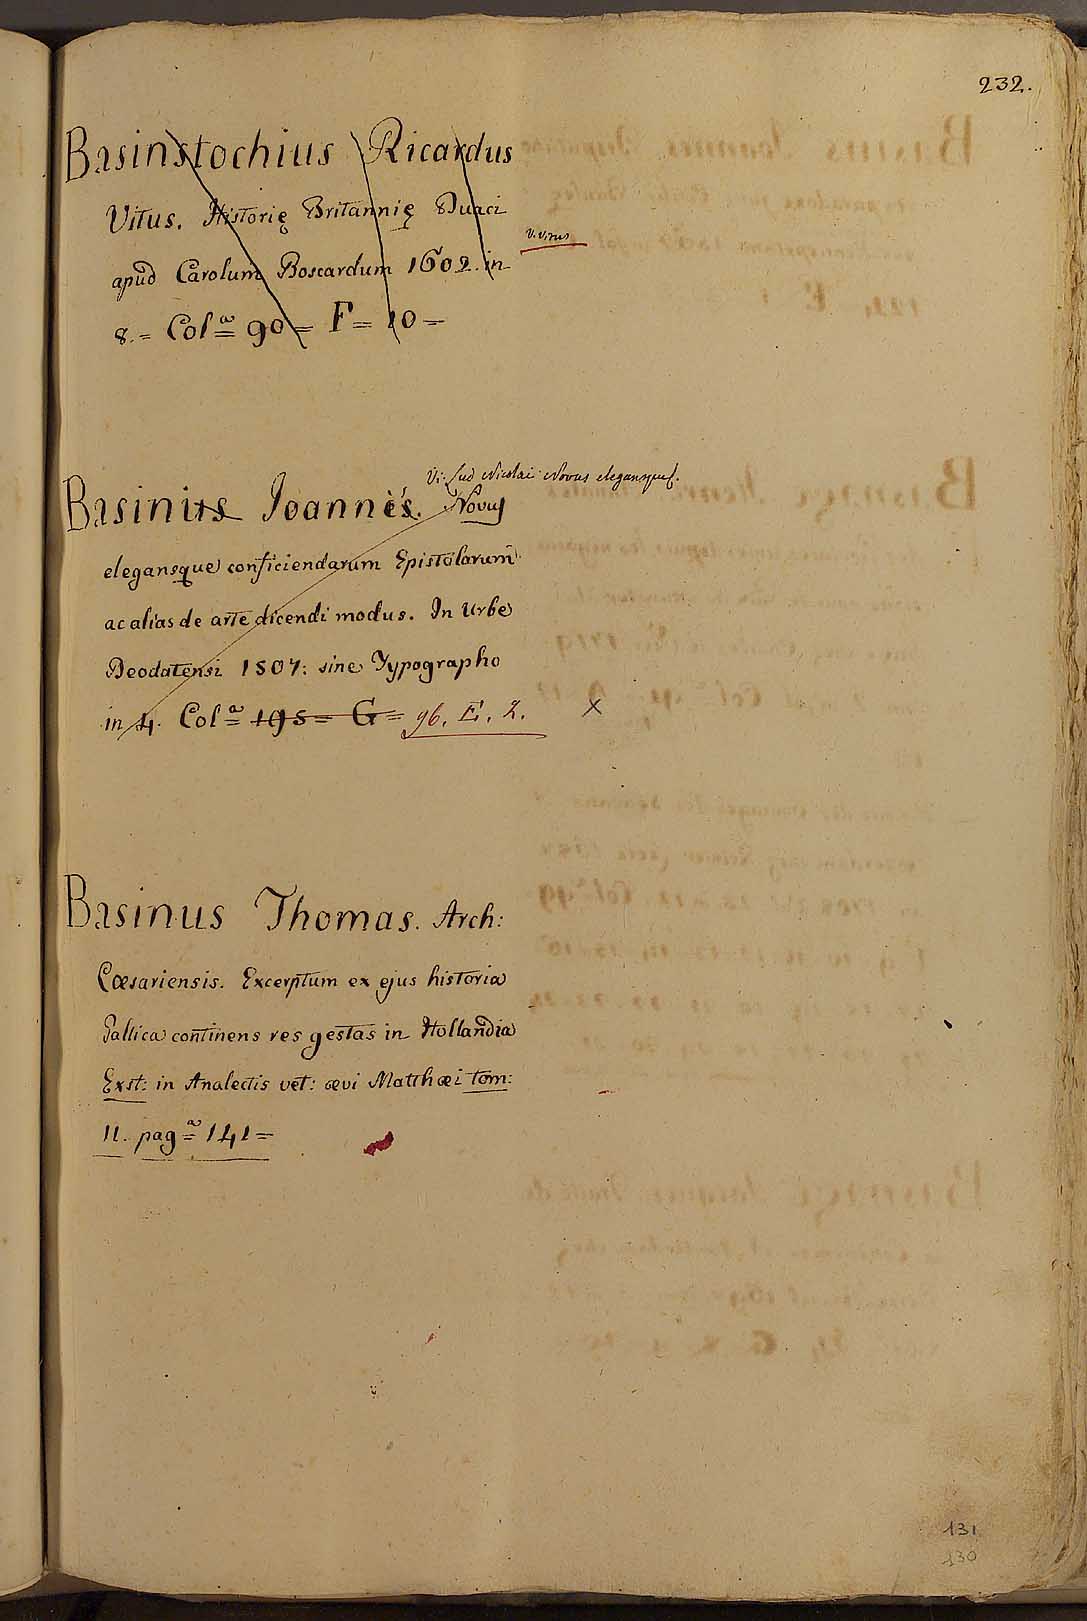 232.
Basinstochius Ricardus
Vitus. Historię Britannię Duaci
V. Vitus
apud Carolum Boscardum 1602. in
8. = Colᵃ = 90 = F = 10 =
Vi. Lud Nicolai Novus elegansque
Basinius Joannes. Novus
elegansque conficiendarum Epistolarum
ac alias de arte dicendi modus. In Urbe
Deodatensi 1507: sine Typographo
in 4. Colᵃ = 195 = G = 96. E. 2. X
Basinus Thomas. Arch:
Cæsariensis. Excerptum ex ejus historia
Gallica continens res gestas in Hollandia
Exst: in Analectis vet: ævi Matthæi tom:
II. pagᵃ = 141 =
131
130